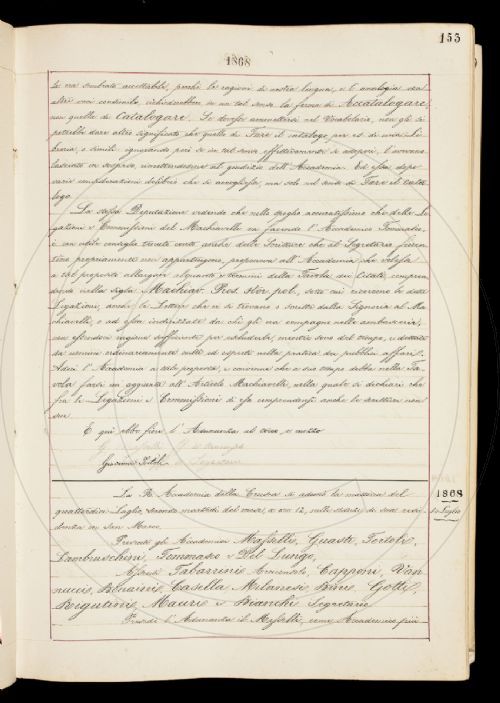 155
1868
le era sembrata accettabile, perchè le ragioni di nostra lingua, e l'analogia
altri voci condannate, richiederebbero in un tal senso la forma di Accatalogare,
non quella di Catalogare. Se dovesse ammettersi nel Vocabolario, non gli si
potrebbe dare altro significato che quello di Fare il catalogo per es. di una Li-
breria, e simili: ignorando però se in tal senso effettivamente si adoperi, l'avevano
lasciata in sospeso, rimettendosene al giudizio dell'Accademia. Ed essa dopo
varie considerazioni deliberò che si accogliesse, ma solo nel senso di Fare il cata-
logo.
La stessa Deputazione vedendo che nello spoglio accuratissimo che delle Le-
gazioni e Commissioni del Machiavelli va facendo l'Accademico Tommaseo,
è con utile consiglio tenuto conto anche delle Scritture che al Segretario fioren-
tino propriamente non appartengono, proponeva all'Accademia che volesse
a tal proposito allargare alquanto i termini della Tavola dei Citati, compren-
dendo nella sigla Machiav. Pros. stor. pol., sotto cui ricorrono le dette
Legazioni, anche le Lettere che vi si trovano o scritte dalla Signoria al Ma-
chiavelli, o ad essa indirizzate da chi gli era compagno nelle ambascerie;
non essendovi ragione sufficiente per escluderle, mentre sono del tempo, e dettate
da uomini ordinariamente culti ed esperti nella pratica dei pubblici affari.
Aderì l'Accademia a tale proposta, e convenne che a suo tempo debba nella Ta-
vola farsi un'aggiunta all'Articolo Machiavelli, nella quale si dichiari che
fra le Legazioni e Commissioni di esso comprendonsi anche le scritture non
sue.
E qui ebbe fine l'Adunanza al tocco, e mezzo
Giovanni Tortoli
1868
14 Luglio
La R. Accademia della Crusca si adunò la mattina del
quattordici Luglio, secondo martedì del mese, a ore 12, nelle stanze di sua resi-
denza in San Marco.
Presenti gli Accademici Masselli, Guasti, Tortoli,
Lambruschini, Tommaseo e Del Lungo,
Assenti Tabarrini Arciconsolo, Capponi, Van-
nucci, Bonaini, Casella, Milanesi, Bini, Gotti,
Rigutini, Mauri e Bianchi Segretario
Presiede l'Adunanza il Masselli, come Accademico più